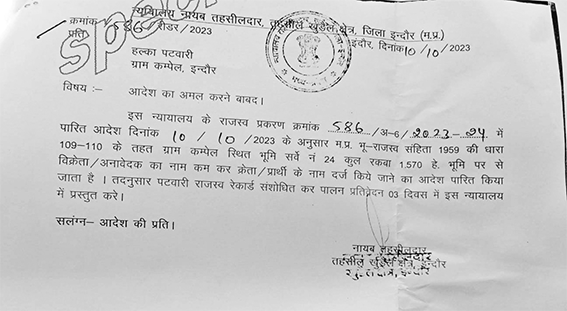 न्यायालय नायब तहसीलदार, तहसील खुडैल क्षेत्र, जिला इन्दौर (म.प्र.)
क्रमांक 586/रीडर/2023 इंदौर, दिनांक 10/10/2023
प्रति,
हल्का पटवारी
ग्राम कम्पेल, इन्दौर
विषय :- आदेश का अमल करने बाबद।
इस न्यायालय के राजस्व प्रकरण क्रमांक 586/अ-6/2023-24 में
पारित आदेश दिनांक 10/10/2023 के अनुसार म.प्र. भू-राजस्व संहिता 1959 की धारा
109-110 के तहत ग्राम कम्पेल स्थित भूमि सर्वे नं 24 कुल रकबा 1.570 हे. भूमि पर से
विक्रेता/अनावेदक का नाम कम कर क्रेता/प्रार्थी के नाम दर्ज किये जाने का आदेश पारित किया
जाता है । तदनुसार पटवारी राजस्व रेकार्ड संशोधित कर पालन प्रतिवेदन 03 दिवस में इस न्यायालय
में प्रस्तुत करे।
सलंग्न– आदेश की प्रति।
नायब तहसीलदार
तहसील खुडैल क्षेत्र, इन्दौर